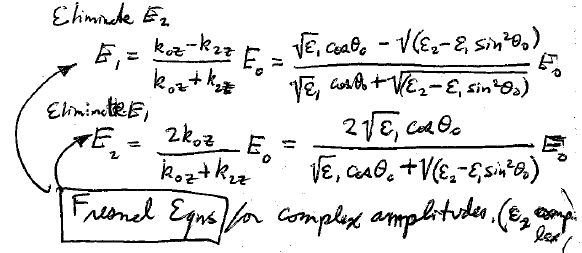 Eliminate E₂
E₁ = (k₀z - k₂z)/(k₀z + k₂z) E₀ = (√ε₁ cosθ₀ - √(ε₂-ε₁ sin²θ₀))/(√ε₁ cosθ₀ + √(ε₂-ε₁ sin²θ₀)) E₀
Eliminate E₁
E₂ = 2k₀z/(k₀z + k₂z) E₀ = 2√ε₁ cosθ₀/(√ε₁ cosθ₀ + √(ε₂-ε₁ sin²θ₀)) E₀
Fresnel Eqns for complex amplitudes. (ε₂ comp-
lex)